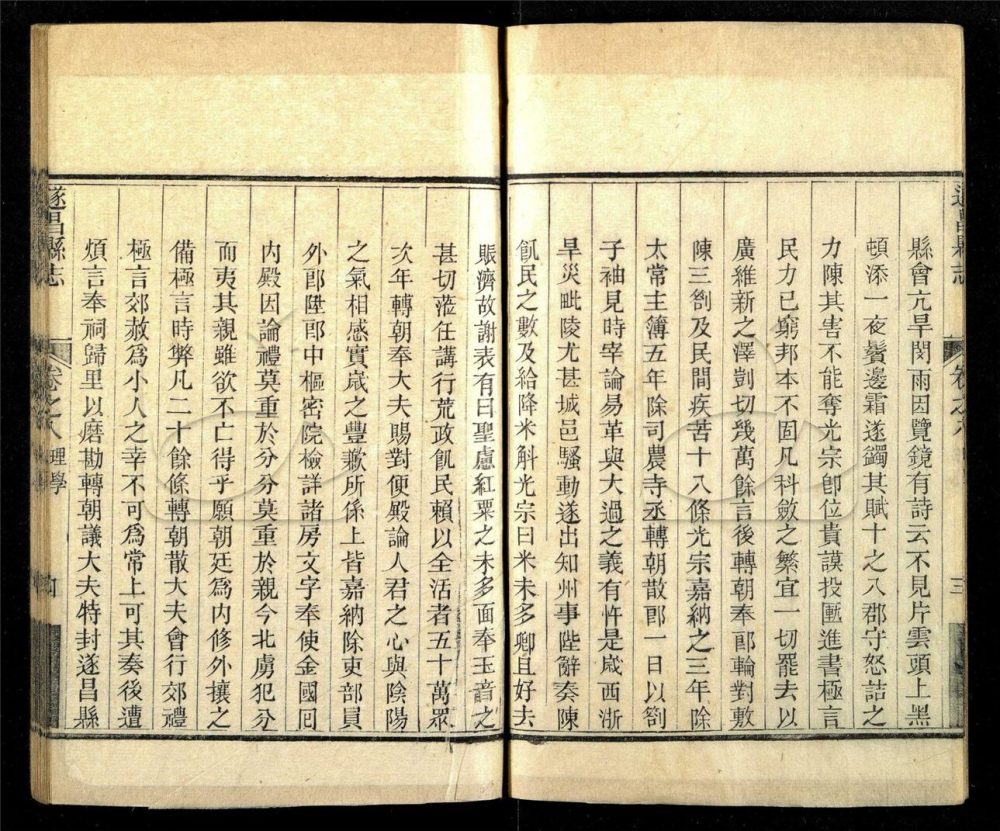 遂昌縣志
卷之八
三
縣會亢旱閔雨因覽鏡有詩云不見片雲頭上黑
頓添一夜鬢邊霜遂蠲其賦十之八郡守怒詰之
力陳其害不能奪光宗卽位貴謨投匭進書極言
民力已窮邦本不固凡科斂之繁宜一切罷去以
廣維新之澤剴切幾萬餘言後轉朝奉郎輪對敷
陳三劄及民間疾苦十八條光宗嘉納之三年除
太常主簿五年除司農寺丞轉朝散郎一日以劄
子袖見時宰論易革與大過之義有忤是歲西浙
旱災毗陵尤甚城邑騷動遂出知州事陛辭奏陳
飢民之數及給降米斛光宗曰米未多卿且好去
賬濟故謝表有曰聖慮紅粟之未多面奉玉音之
甚切蒞任講行荒政飢民賴以全活者五十萬眾
次年轉朝奉大夫賜對便殿論人君之心與陰陽
之氣相感實歲之豐歉所係上皆嘉納除吏部員
外郎陞郎中樞密院檢詳諸房文字奉使金國囘
內殿因論禮莫重於分分莫重於親今北虜犯分
而夷其親雖欲不亡得乎願朝廷爲內修外攘之
備極言時弊凡二十餘條轉朝散大夫會行郊禮
極言郊赦爲小人之幸不可爲常上可其奏後遭
煩言奉祠歸里以磨勘轉朝議大夫特封遂昌縣
遂昌縣志
卷之八
理學